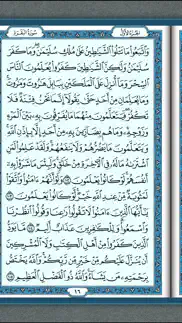 سُورَةُ البَقَرَةِ الجُزْءُ الأَوَّلُ
وَٱتَّبَعُوا۟ مَا تَتْلُوا۟ ٱلشَّيَٰطِينُ عَلَىٰ مُلْكِ سُلَيْمَٰنَ ۖ وَمَا كَفَرَ
سُلَيْمَٰنُ وَلَٰكِنَّ ٱلشَّيَٰطِينَ كَفَرُوا۟ يُعَلِّمُونَ ٱلنَّاسَ
ٱلسِّحْرَ وَمَآ أُنزِلَ عَلَى ٱلْمَلَكَيْنِ بِبَابِلَ هَٰرُوتَ وَمَٰرُوتَ ۚ
وَمَا يُعَلِّمَانِ مِنْ أَحَدٍ حَتَّىٰ يَقُولَآ إِنَّمَا نَحْنُ فِتْنَةٌ فَلَا
تَكْفُرْ ۖ فَيَتَعَلَّمُونَ مِنْهُمَا مَا يُفَرِّقُونَ بِهِۦ بَيْنَ ٱلْمَرْءِ
وَزَوْجِهِۦ ۚ وَمَا هُم بِضَآرِّينَ بِهِۦ مِنْ أَحَدٍ إِلَّا بِإِذْنِ ٱللَّهِ ۚ
وَيَتَعَلَّمُونَ مَا يَضُرُّهُمْ وَلَا يَنفَعُهُمْ ۚ وَلَقَدْ عَلِمُوا۟ لَمَنِ
ٱشْتَرَىٰهُ مَا لَهُۥ فِى ٱلْءَاخِرَةِ مِنْ خَلَٰقٍ ۚ وَلَبِئْسَ مَا شَرَوْا۟ بِهِۦٓ
أَنفُسَهُمْ ۚ لَوْ كَانُوا۟ يَعْلَمُونَ ١٠٢ وَلَوْ أَنَّهُمْ ءَامَنُوا۟ وَٱتَّقَوْا۟
لَمَثُوبَةٌ مِّنْ عِندِ ٱللَّهِ خَيْرٌ ۖ لَّوْ كَانُوا۟ يَعْلَمُونَ ١٠٣
يَٰٓأَيُّهَا ٱلَّذِينَ ءَامَنُوا۟ لَا تَقُولُوا۟ رَٰعِنَا وَقُولُوا۟ ٱنظُرْنَا
وَٱسْمَعُوا۟ ۗ وَلِلْكَٰفِرِينَ عَذَابٌ أَلِيمٌ ١٠٤ مَّا يَوَدُّ
ٱلَّذِينَ كَفَرُوا۟ مِنْ أَهْلِ ٱلْكِتَٰبِ وَلَا ٱلْمُشْرِكِينَ
أَن يُنَزَّلَ عَلَيْكُم مِّنْ خَيْرٍ مِّن رَّبِّكُمْ ۗ وَٱللَّهُ يَخْتَصُّ
بِرَحْمَتِهِۦ مَن يَشَآءُ ۚ وَٱللَّهُ ذُو ٱلْفَضْلِ ٱلْعَظِيمِ ١٠٥
١٦